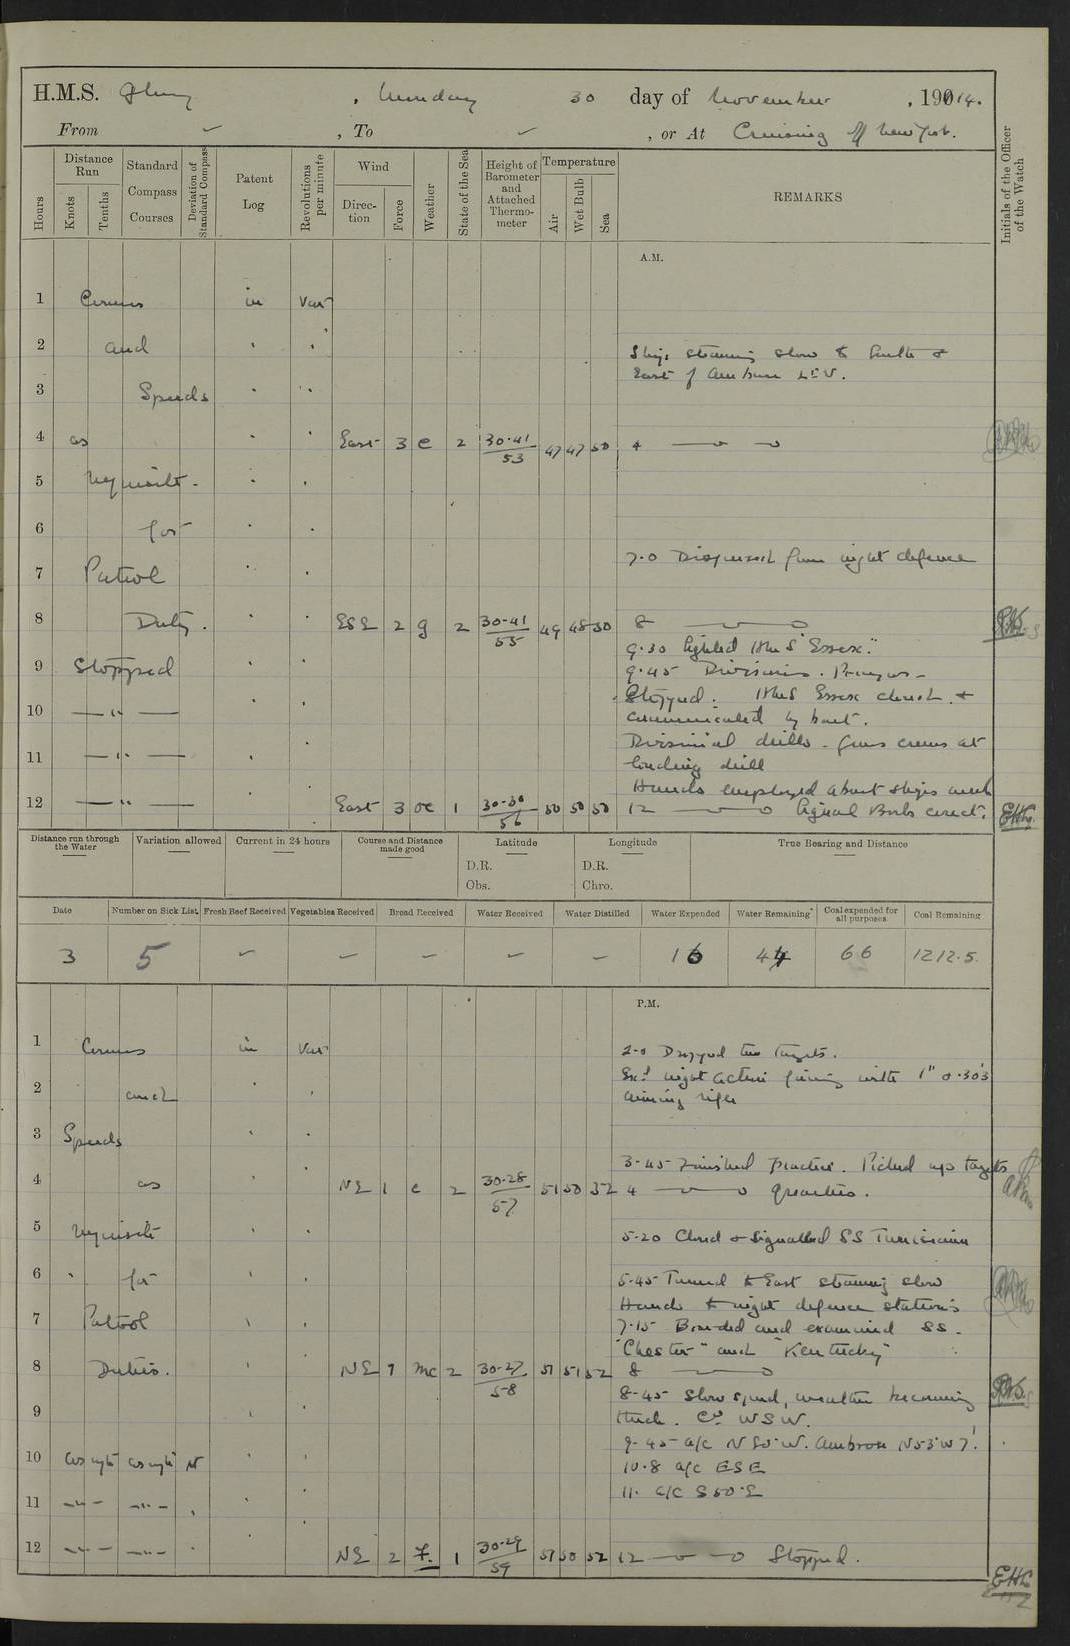 H.M.S. Glory, Monday 30 day of November, 1914.
From ✓, To ✓, or At Cruising off New York.
Hours
Distance Run
Knots
Tenths
Standard Compass Courses
Deviation of Standard Compass
Patent Log
Revolutions per minute
Wind
Direction
Force
Weather
State of the Sea
Height of Barometer and Attached Thermometer
Temperature
Air
Wet Bulb
Sea
REMARKS
Initials of the Officer of the Watch
A.M.
1 Courses in Var
2 and " " Ship steaming slow to South &
East of Ambrose L.V.
3 Speeds " "
4 as " " East 3 c 2 30·41/53 47 47 50 4
5 requisite - " "
6 for " "
7·0 Dispersed from night defence
7 Patrol " "
8 Duty. " " ESE 2 g 2 30-41/55 49 48 50 8
9·30 Sighted HMS "Essex".
9 Stopped " " 9·45 Divisions. Prayers -
Stopped. HMS Essex closed &
10 — " — " " communicated by boat.
Divisional drills - Guns crews at
11 — " — " " loading drill
Hands employed about ships work
12 — " — East 3 oc 1 30-30/56 50 50 50 12 Signal Books correct.
EHG
Distance run through the Water
Variation allowed
Current in 24 hours
Course and Distance made good
Latitude
D.R.
Obs.
Longitude
D.R.
Chro.
True Bearing and Distance
Date
Number on Sick List
Fresh Beef Received
Vegetables Received
Bread Received
Water Received
Water Distilled
Water Expended
Water Remaining
Coal expended for all purposes
Coal Remaining
3 5 – – – – – 16 44 66 1212·5
P.M.
1 Courses in Var 2-0 Dropped two targets.
Exd night action firing with 1" & ·303
2 and " " aiming rifles
3 Speeds " "
3-45 Finished practice. Picked up targets
4 as " " NE 1 c 2 30-28/57 51 50 52 4 Quarters.
5 requisite " " 5-20 Closed & signalled SS Tunisiana
6 " for " " 5-45 Turned to East steaming slow
Hands to night defence stations
7 Patrol " " 7·15 Boarded and examined SS.
"Chester" and "Kentucky"
8 Duties. " " NE 1 mc 2 30-27/58 51 51 52 8
8-45 Slow speed, weather becoming
9 " " thick. Co WSW.
9-45 a/c N50°W. Ambrose N53°W 7'.
10 as reqte as reqte N " " 10·8 a/c ESE
11 — " — — " — " " 11. a/c S50°E
12 — " — — " — " NE 2 F. 1 30-29/59 51 50 52 12 Stopped.
EHG